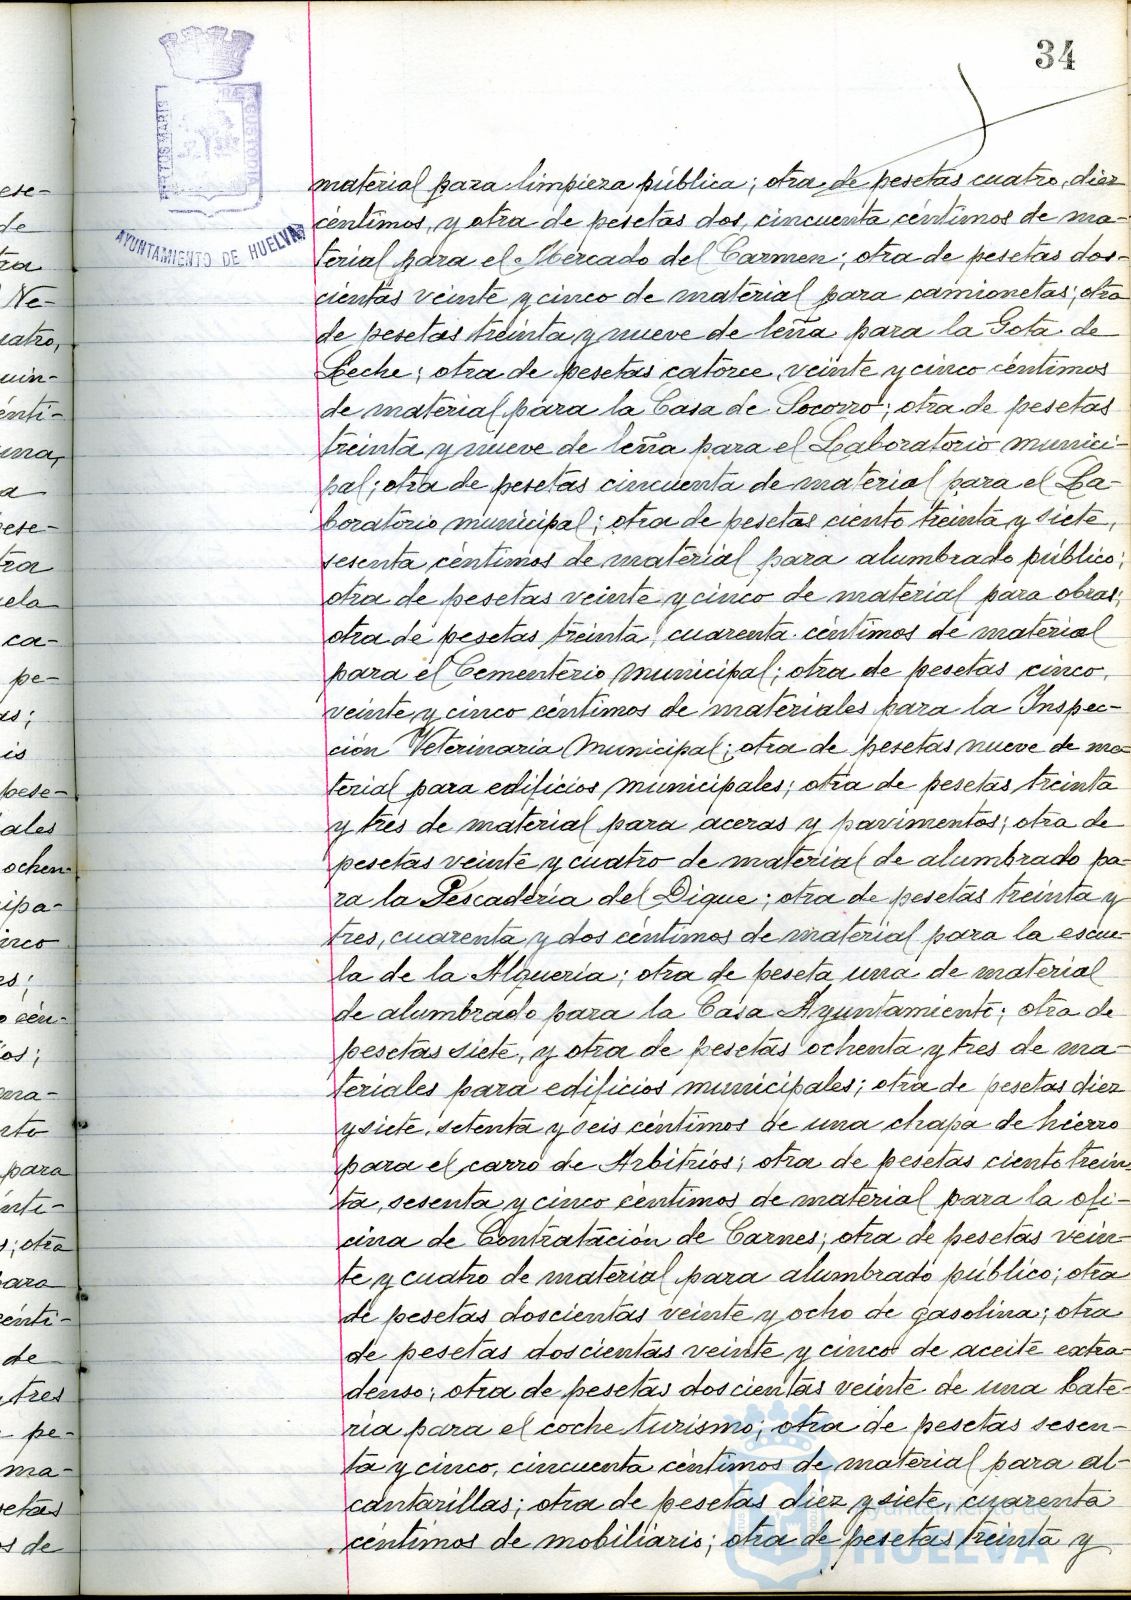 34
PORTUS MARIS ET TERRÆ CUSTODIA
AYUNTAMIENTO DE HUELVA
material para limpieza pública; otra de pesetas cuatro, diez
céntimos, y otra de pesetas dos, cincuenta céntimos de ma-
terial para el Mercado del Carmen; otra de pesetas dos-
cientas veinte y cinco de material para camionetas; otra
de pesetas treinta y nueve de leña para la Gota de
Leche; otra de pesetas catorce, veinte y cinco céntimos
de material para la Casa de Socorro; otra de pesetas
treinta y nueve de leña para el Laboratorio munici-
pal; otra de pesetas cincuenta de material para el La-
boratorio municipal; otra de pesetas ciento treinta y siete,
sesenta céntimos de material para alumbrado público;
otra de pesetas veinte y cinco de material para obras;
otra de pesetas treinta, cuarenta céntimos de material
para el Cementerio municipal; otra de pesetas cinco,
veinte y cinco céntimos de materiales para la Inspec-
ción Veterinaria Municipal; otra de pesetas nueve de ma-
terial para edificios municipales; otra de pesetas treinta
y tres de material para aceras y pavimentos; otra de
pesetas veinte y cuatro de material de alumbrado pa-
ra la Pescadería del Dique; otra de pesetas treinta y
tres, cuarenta y dos céntimos de material para la escue-
la de la Alquería; otra de peseta una de material
de alumbrado para la Casa Ayuntamiento; otra de
pesetas siete, y otra de pesetas ochenta y tres de ma-
teriales para edificios municipales; otra de pesetas diez
y siete, setenta y seis céntimos de una chapa de hierro
para el carro de Arbitrios; otra de pesetas ciento trein-
ta, sesenta y cinco céntimos de material para la ofi-
cina de Contratación de Carnes; otra de pesetas vein-
te y cuatro de material para alumbrado público; otra
de pesetas doscientas veinte y ocho de gasolina; otra
de pesetas doscientas veinte y cinco de aceite extra-
denso; otra de pesetas doscientas veinte de una bate-
ría para el coche turismo; otra de pesetas sesen-
ta y cinco, cincuenta céntimos de material para al-
cantarillas; otra de pesetas diez y siete, cuarenta
céntimos de mobiliario; otra de pesetas treinta y
Ayuntamiento de
HUELVA